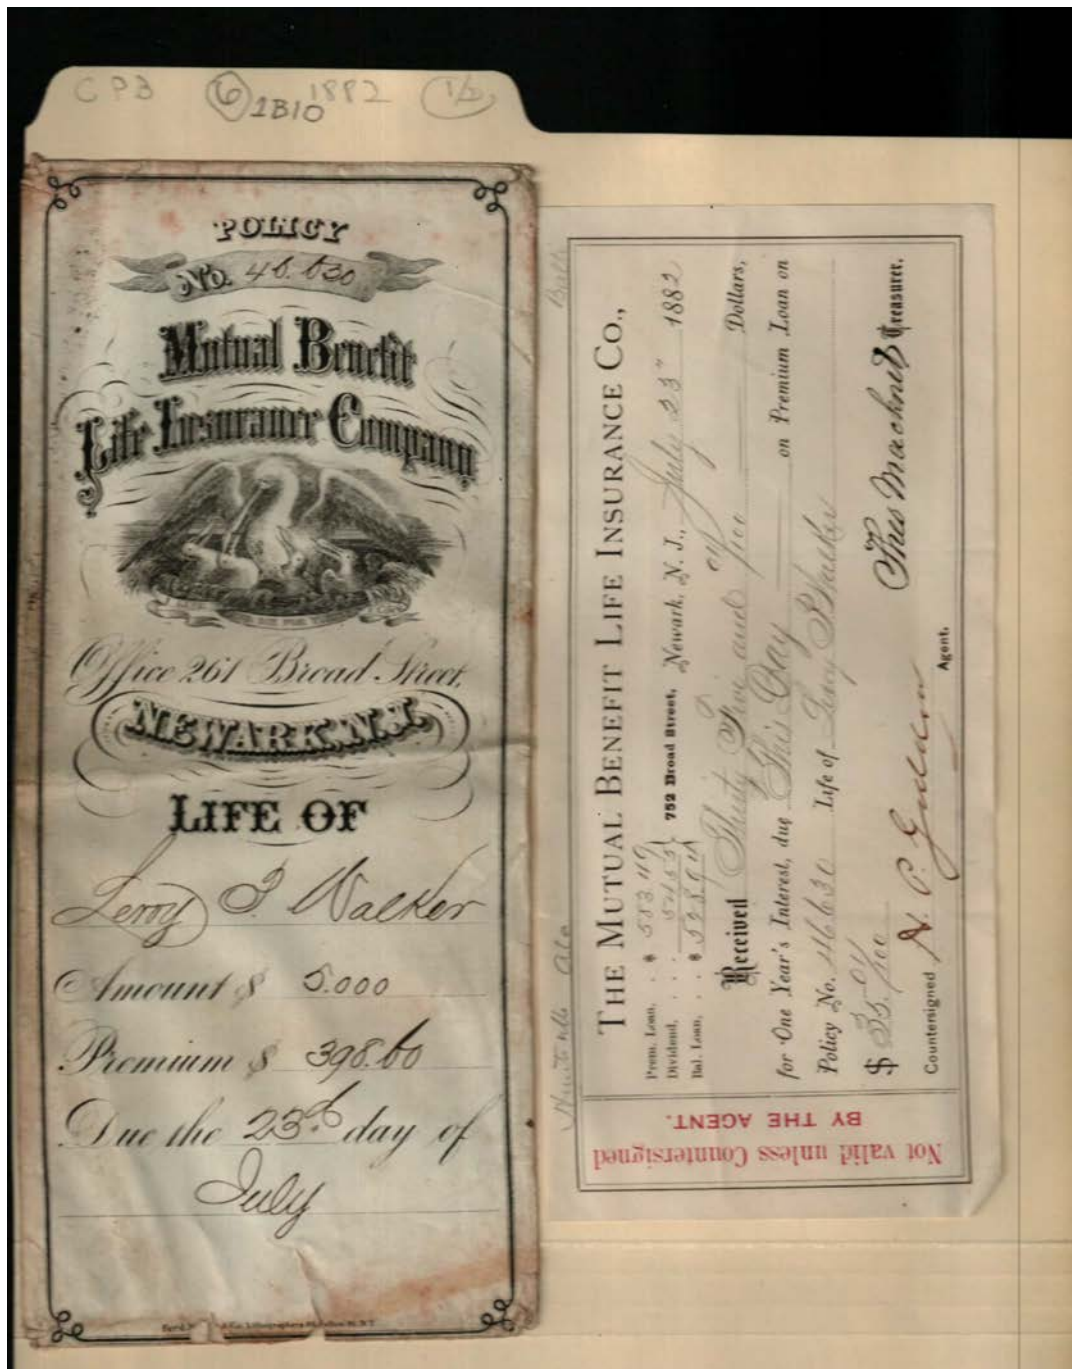 CPB 6 1B10 1882 1/2
POLICY
No. 46.630
Mutual Benefit
Life Insurance Company
Office 261 Broad Street,
NEWARK, N.J.
LIFE OF
Leroy P. Walker
Amount $ 5.000
Premium $ 398.60
Due the 23d day of
July
Huntsville Ala
THE MUTUAL BENEFIT LIFE INSURANCE CO.,
Prem. Loan, . . $ 583 49
Dividend, . . .
Bal. Loan, . . $
752 Broad Street, Newark, N. J., July 23" 1882
Received Thirty Five and 04/100 Dollars,
for One Year's Interest, due This Day on Premium Loan on
Policy No. 46630 Life of Leroy P Walker
$ 35.04/100
Treasurer.
Countersigned
Agent.
Not valid unless Countersigned
BY THE AGENT.